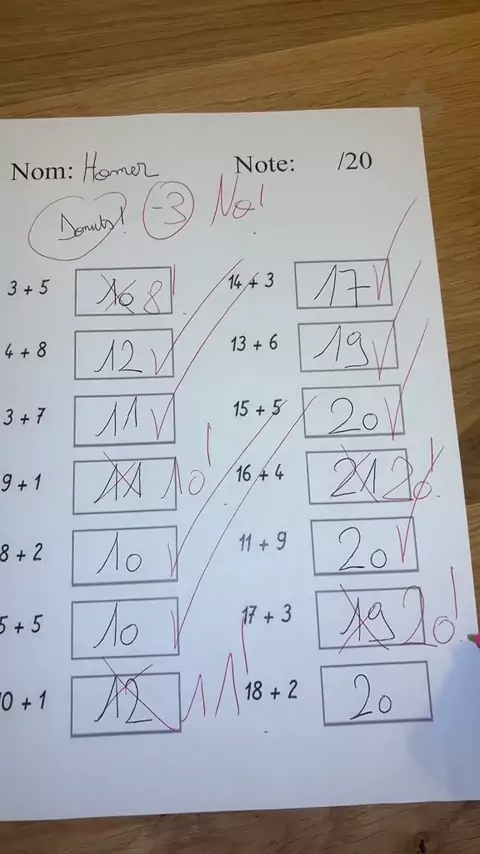 Nom: Homer Note: /20
Donuts! -3 No!
3 + 5 10 8! 14 + 3 17
4 + 8 12 13 + 6 19
3 + 7 11 15 + 5 20
9 + 1 11 10! 16 + 4 21 20!
8 + 2 10 11 + 9 20
5 + 5 10 17 + 3 19 20!
0 + 1 12 11! 18 + 2 20